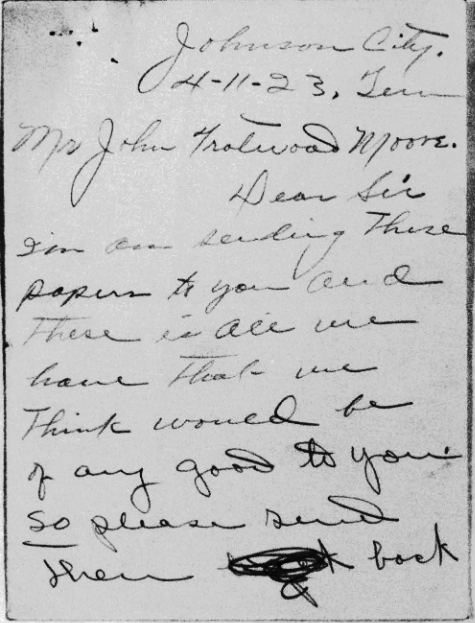 Johnson City.
4-11-23, Tenn
Mr John Trotwood Moore.
Dear Sir
I'm am sending These
papers to you and
These is all we
have that we
Think would be
of any good to you.
So please send
them back